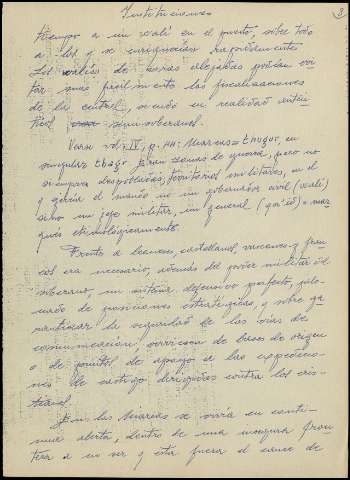 Instituciones
3
tiempo a un walí en el puesto, sobre todo
a los q se enriquecían rapidamente
Los walíes de zonas alejadas podían evi-
tar más fácilmente las fiscalizaciones
de la central, siendo en realidad autén-
ticos semi soberanos.
Vease vol. IV, p. Marcas = thugur, en
singular thagr. Eran zonas de guerra, pero no
siempre despobladas, territorios militares, en el
q ejercía el mando no un gobernador civil (walí)
sino un jefe militar, un general (qa'id) = mar-
qués etimologicamente.
Frente a leoneses, castellanos, vascones y fran-
cos era necesario, además del poder militar del
soberano, un sistema defensivo perfecto, jalo-
nado de posiciones estrategicas, q sobre ga-
rantizar la seguridad de las vias de
comunicación, sirviesen de bases de origen
o de puntos de apoyo a las expedicio-
nes de castigo dirigidas contra los cris-
tianos.
En las Marcas se vivía en conti-
nua alerta, dentro de una insegura fron-
tera a no ser q esta fuera el cauce de